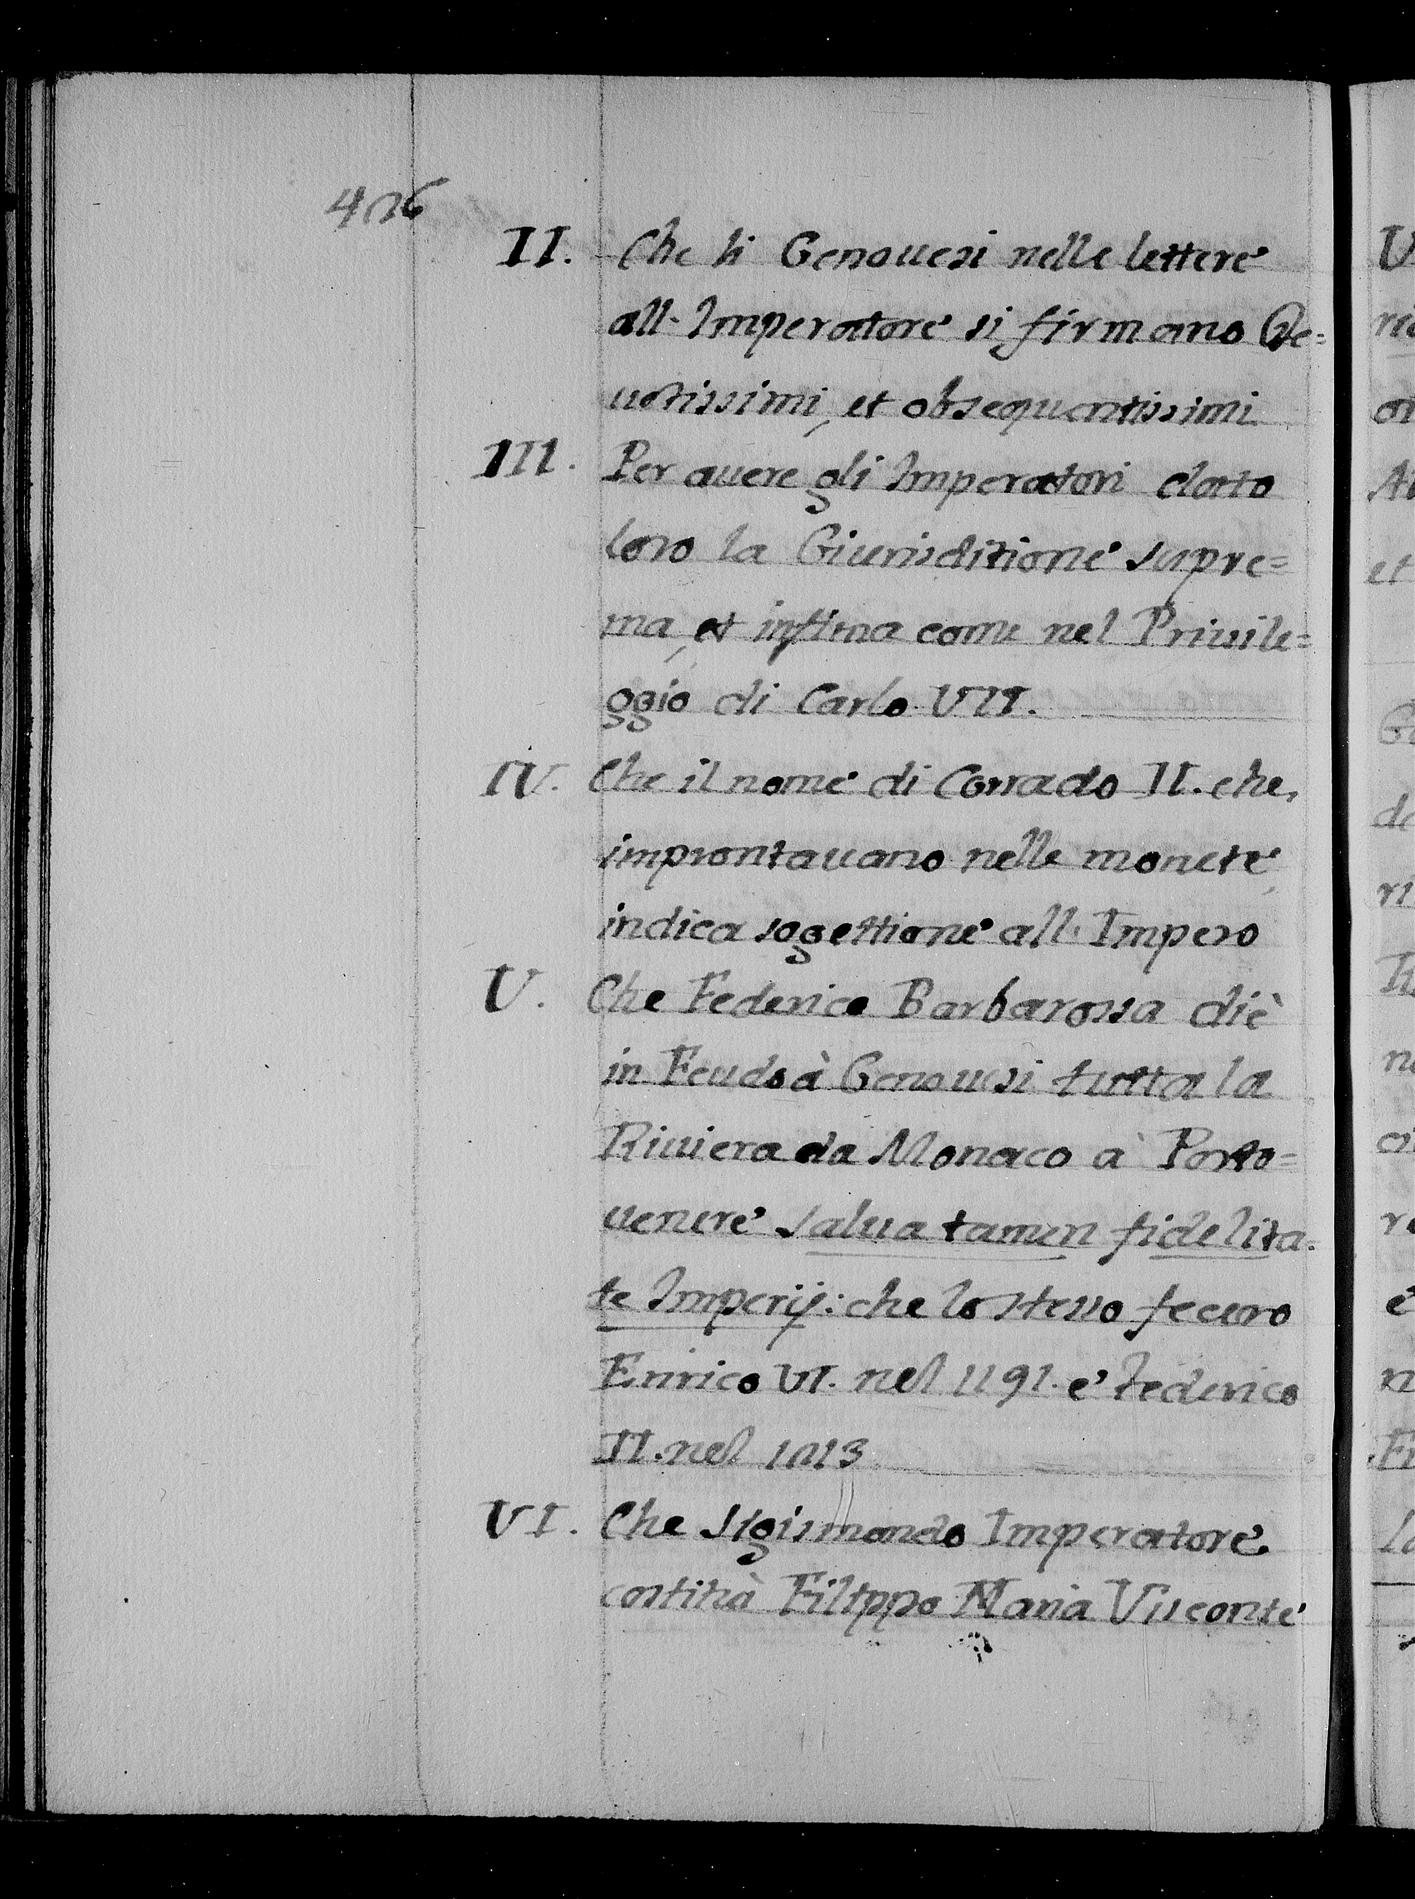 426
II. Che li Genouesi nelle lettere
all. Imperatore si firmano De=
uotissimi, et obsequentissimi
III. Per auere gli Imperatori dato
loro la Giurisditione supre=
ma, et infima come nel Priuile=
ggio di Carlo VII.
IV. Che il nome di Corrado II. che,
improntauano nelle monete
indica sogettione all. Impero
V. Che Federico Barbarossa diè
in Feudo à Genouesi tutta la
Riuiera da Monaco à Porto=
uenere salua tamen fidelita=
te Imperij: che lo stesso fecero
Enrico VI. nel 1191. e Federico
II. nel 1213
VI. Che Sigismondo Imperatore
costitui Filippo Maria Visconte